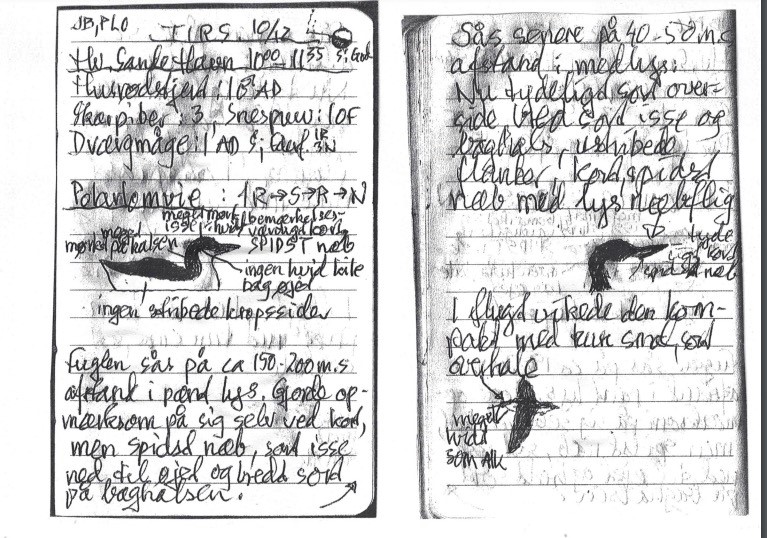 JB, PLO
TIRS. 10/12
Hv. Sande Havn 10⁰⁰-11³⁵
Husrødstjert: 1 AD
Skærpiber: 3, Snespurv: 10F
Dværgmåge: 1 AD S,
Polarlomvie: 1 R→S→R→N
meget mørk
isse
meget
mørk på halsen
bemærkelses-
værdigt kort,
SPIDST næb
ingen hvid kile
bag øjet
ingen stribede kropssider
Fuglen sås på ca 150-200 m.s
afstand i pænt lys. Gjorde op-
mærksom på sig selv ved kort,
men spidst næb, sort isse
ned til øjet og bredt sort
på baghalsen.
Sås senere på 40-50 m.s
afstand i medlys:
Nu tydeligt sort over-
side bred sort isse og
baghals, ustribede
flanker, kort spidst
næb med lys næbflig
tyde
ligt kort
spidst næb
I flugt virkede den kom-
pakt med kun smal, sort
armhule
meget
hvid
som Alk